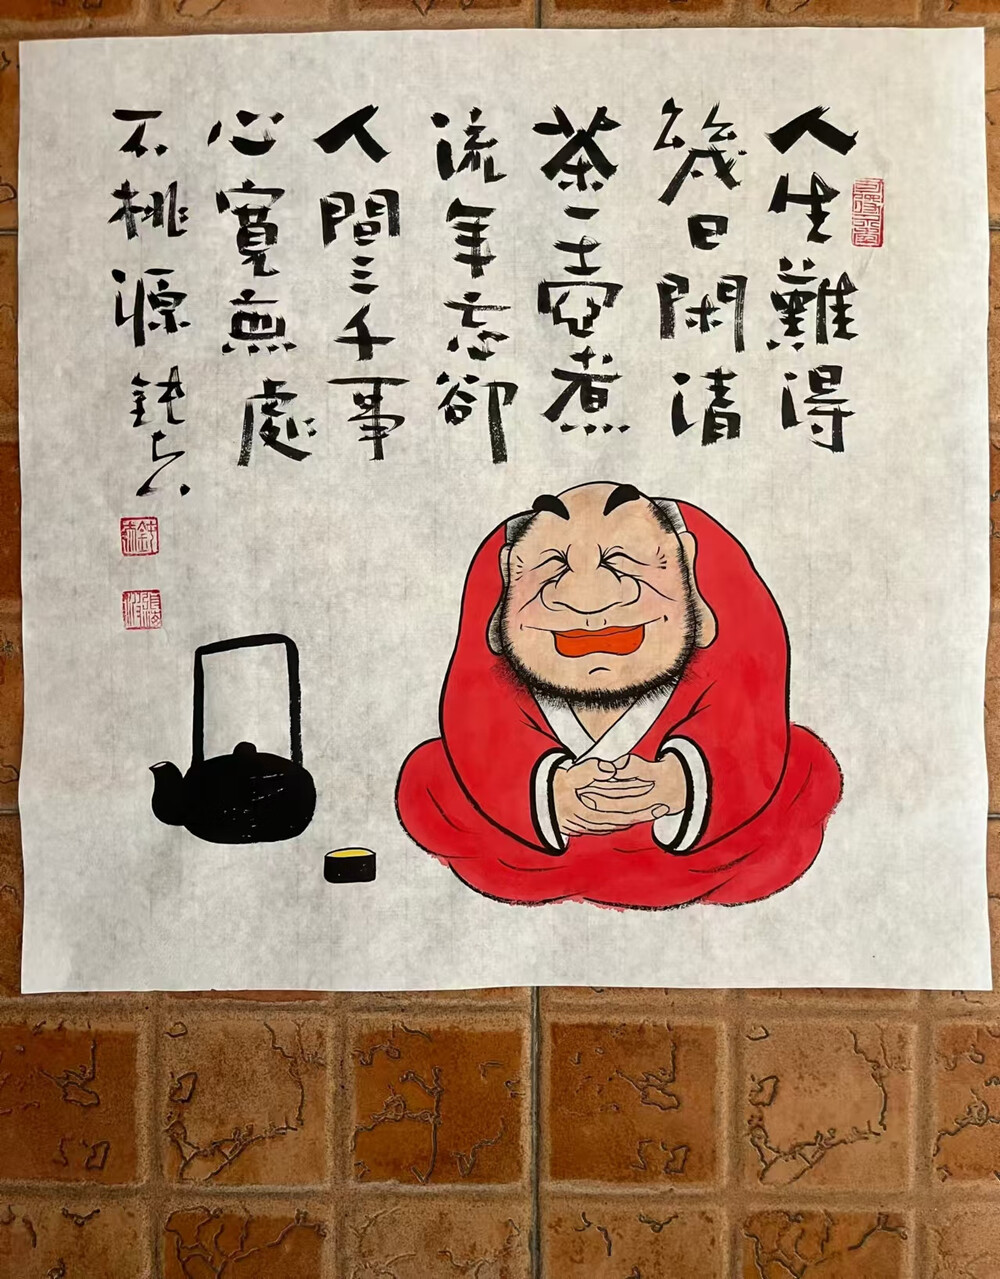 人生難得
幾日閑清
茶一壺煮
流年忘卻
人間三千事
心寬無處
不桃源 鈍